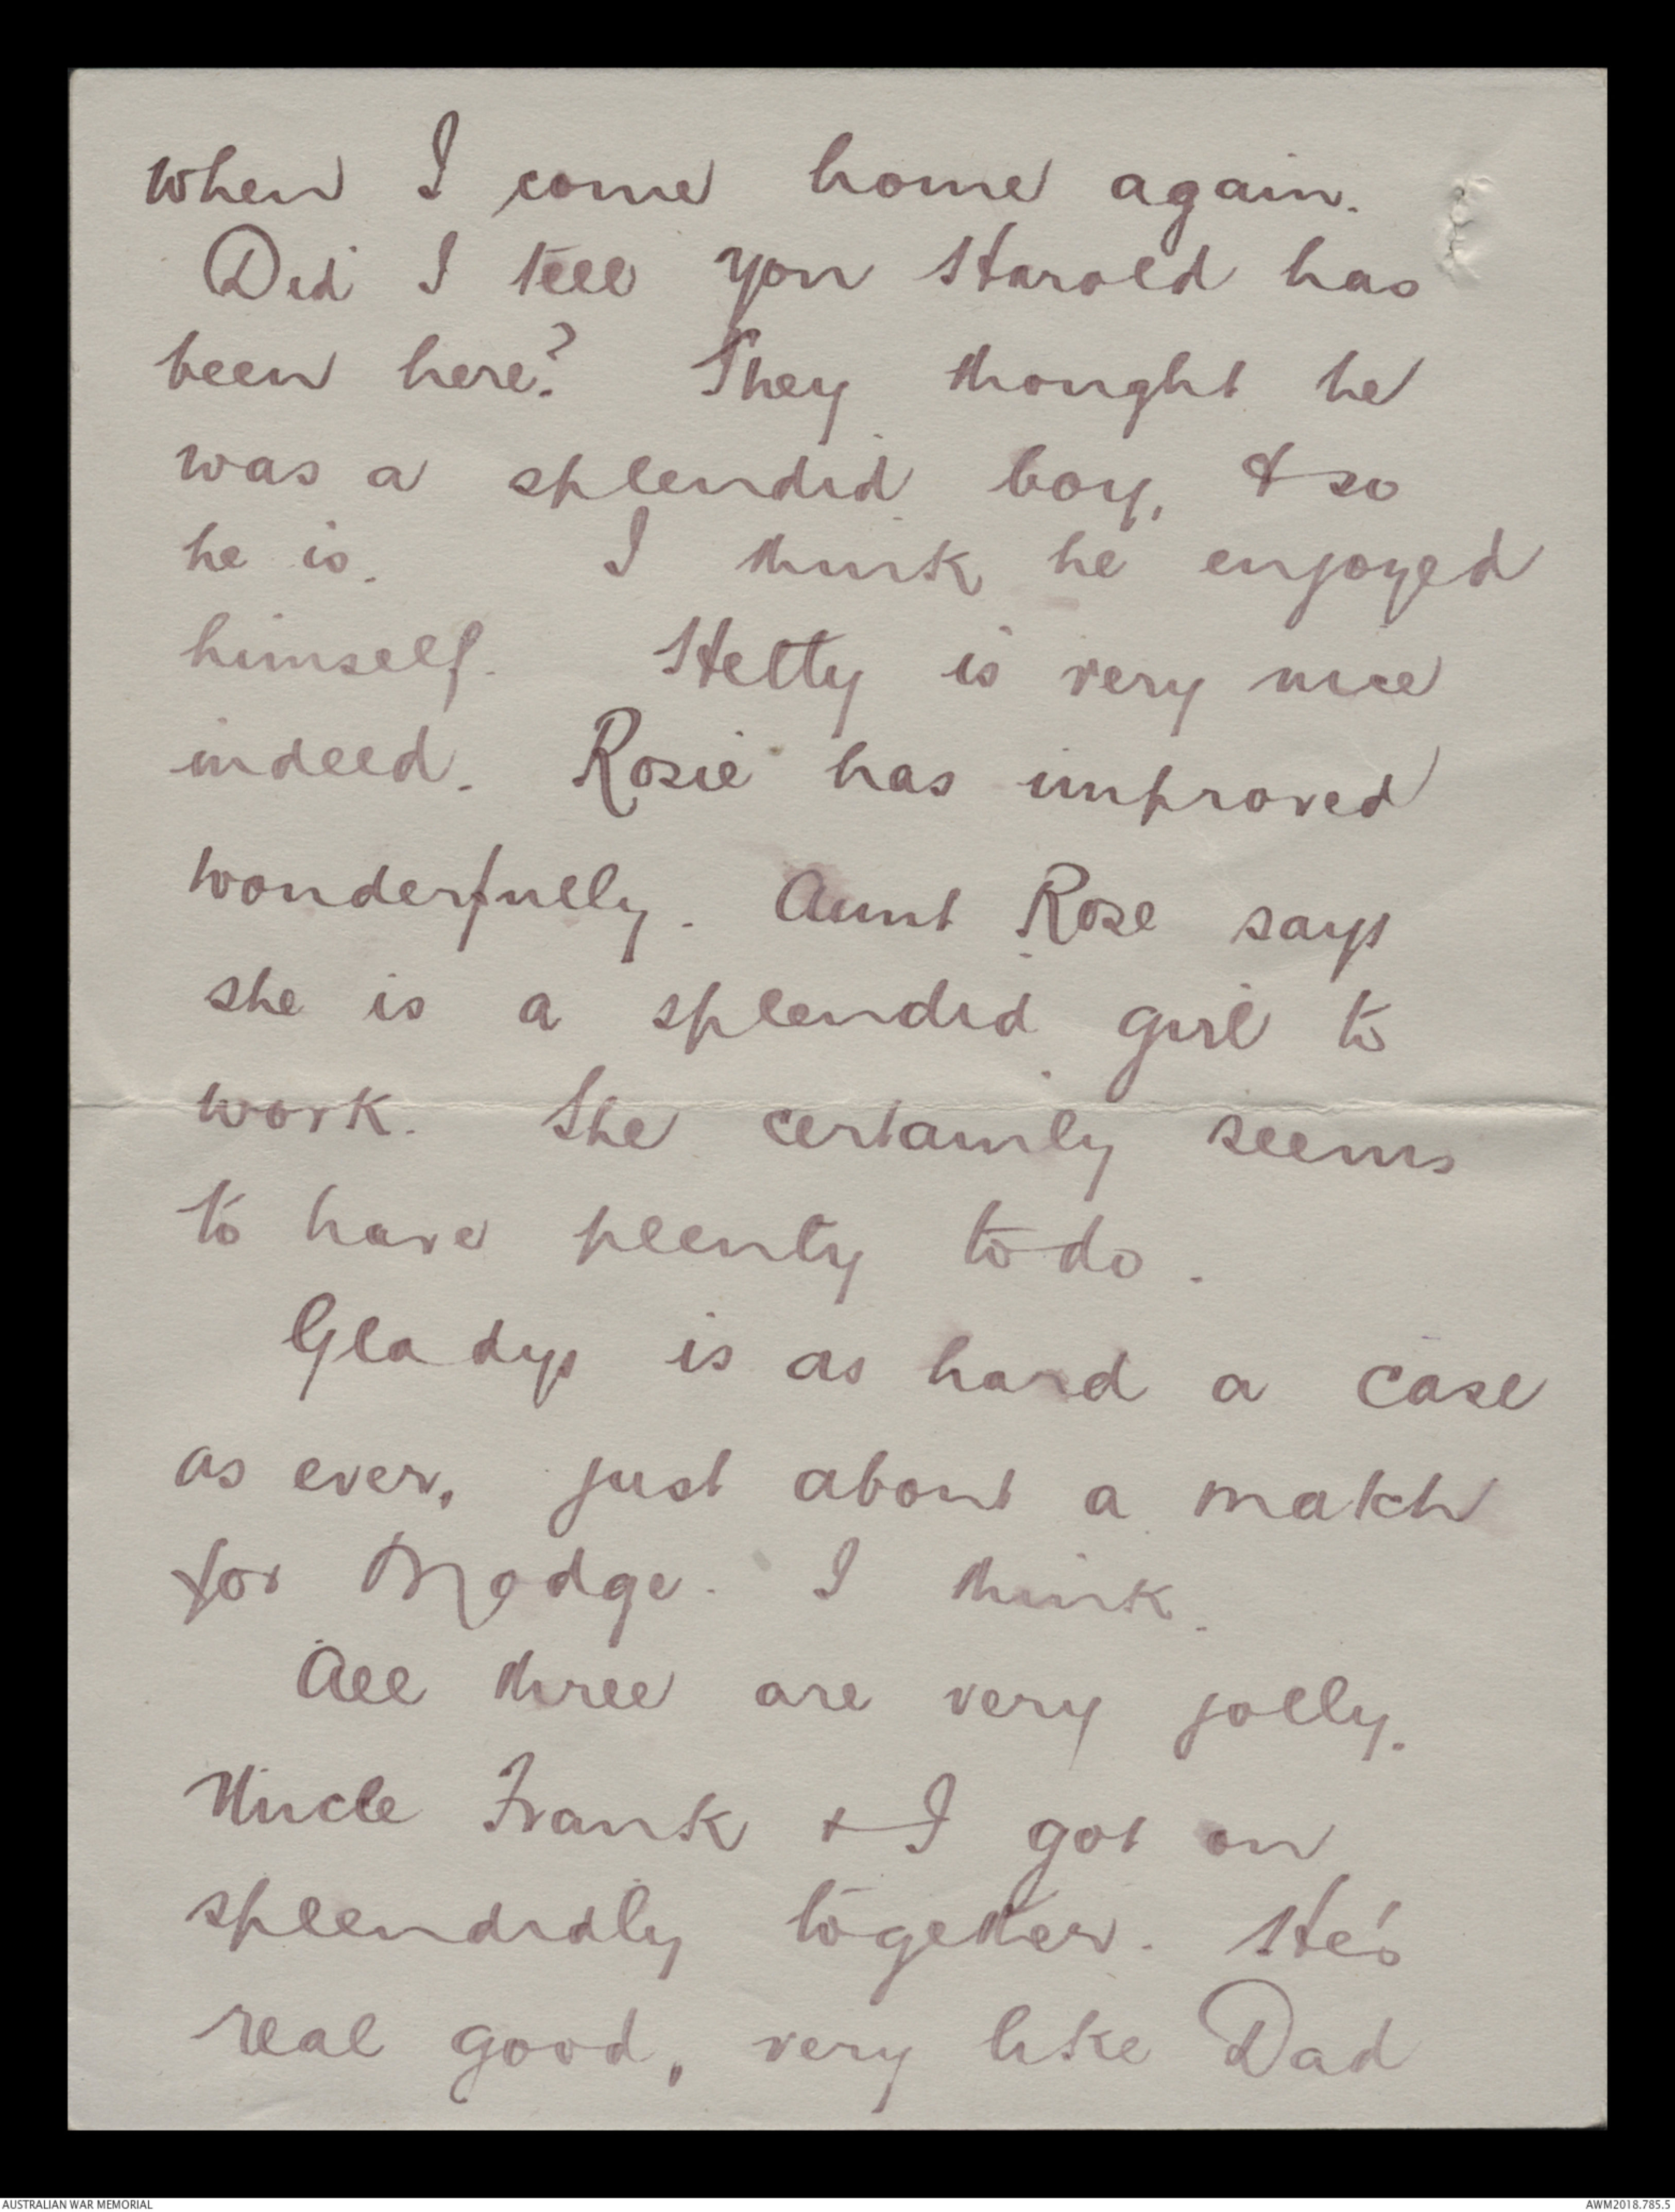 when I come home again.
Did I tell you Harold has
been here? They thought he
was a splendid boy, & so
he is. I think he enjoyed
himself. Hetty is very nice
indeed. Rosie has improved
wonderfully. Aunt Rose says
she is a splendid girl to
work. She certainly seems
to have plenty to do.
Gladys is as hard a case
as ever, just about a match
for Madge. I think.
All three are very jolly.
Uncle Frank & I got on
splendidly together. He's
real good, very like Dad
AUSTRALIAN WAR MEMORIAL
AWM2018.785.5